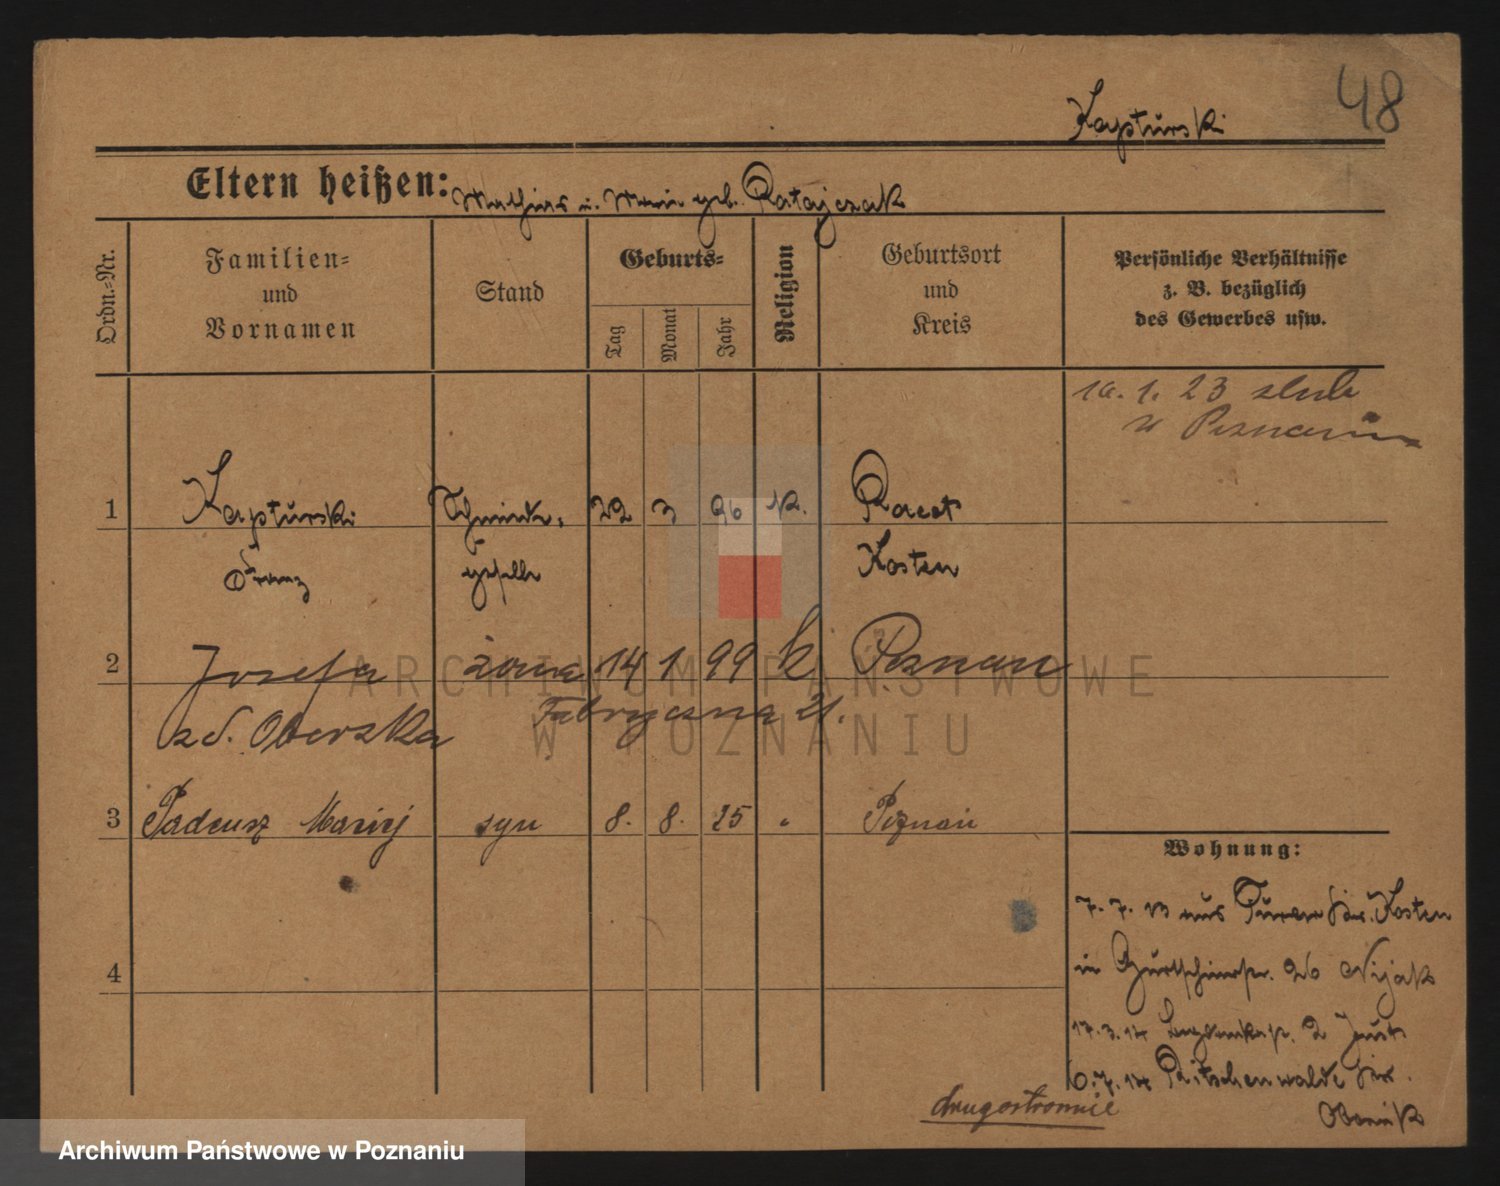 48
Kapturski
Eltern heißen: Mathias u. Marie geb. Ratajczak
Ordn.-Nr.
Familien-
und
Vornamen
Stand
Geburts-
Tag
Monat
Jahr
Religion
Geburtsort
und
Kreis
Persönliche Verhältnisse
z. B. bezüglich
des Gewerbes usw.
1. 23 ślub
w Poznaniu
1 Kapturski Schmiede- 22 3 96 K. Racot
Franz geselle Kosten
2 Josefa żona 14 1 99 k Poznań
zd. Oberska Fabryczna 21.
3 Tadeusz Maciej syn 8. 8. 25 " Poznań
4
Wohnung:
7. 7. 13 aus Turew Krs. Kosten
in 26 Nijak
17.3.14 2 Just
6.7.14 Ritschenwalde Kr.
Obornik
drugostronnie
ARCHIWUM PAŃSTWOWE
W POZNANIU
Archiwum Państwowe w Poznaniu